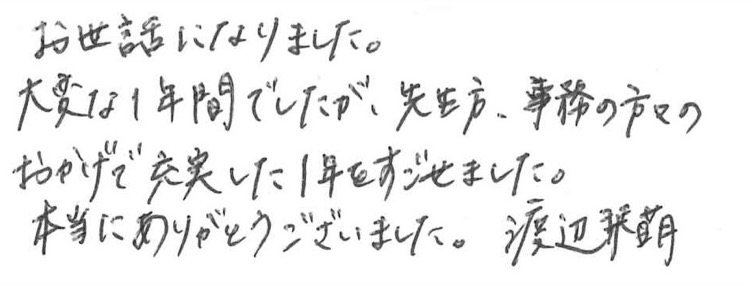 お世話になりました。
大変な1年間でしたが、先生方、事務の方々の
おかげで充実した1年をすごせました。
本当にありがとうございました。 渡辺琴萌